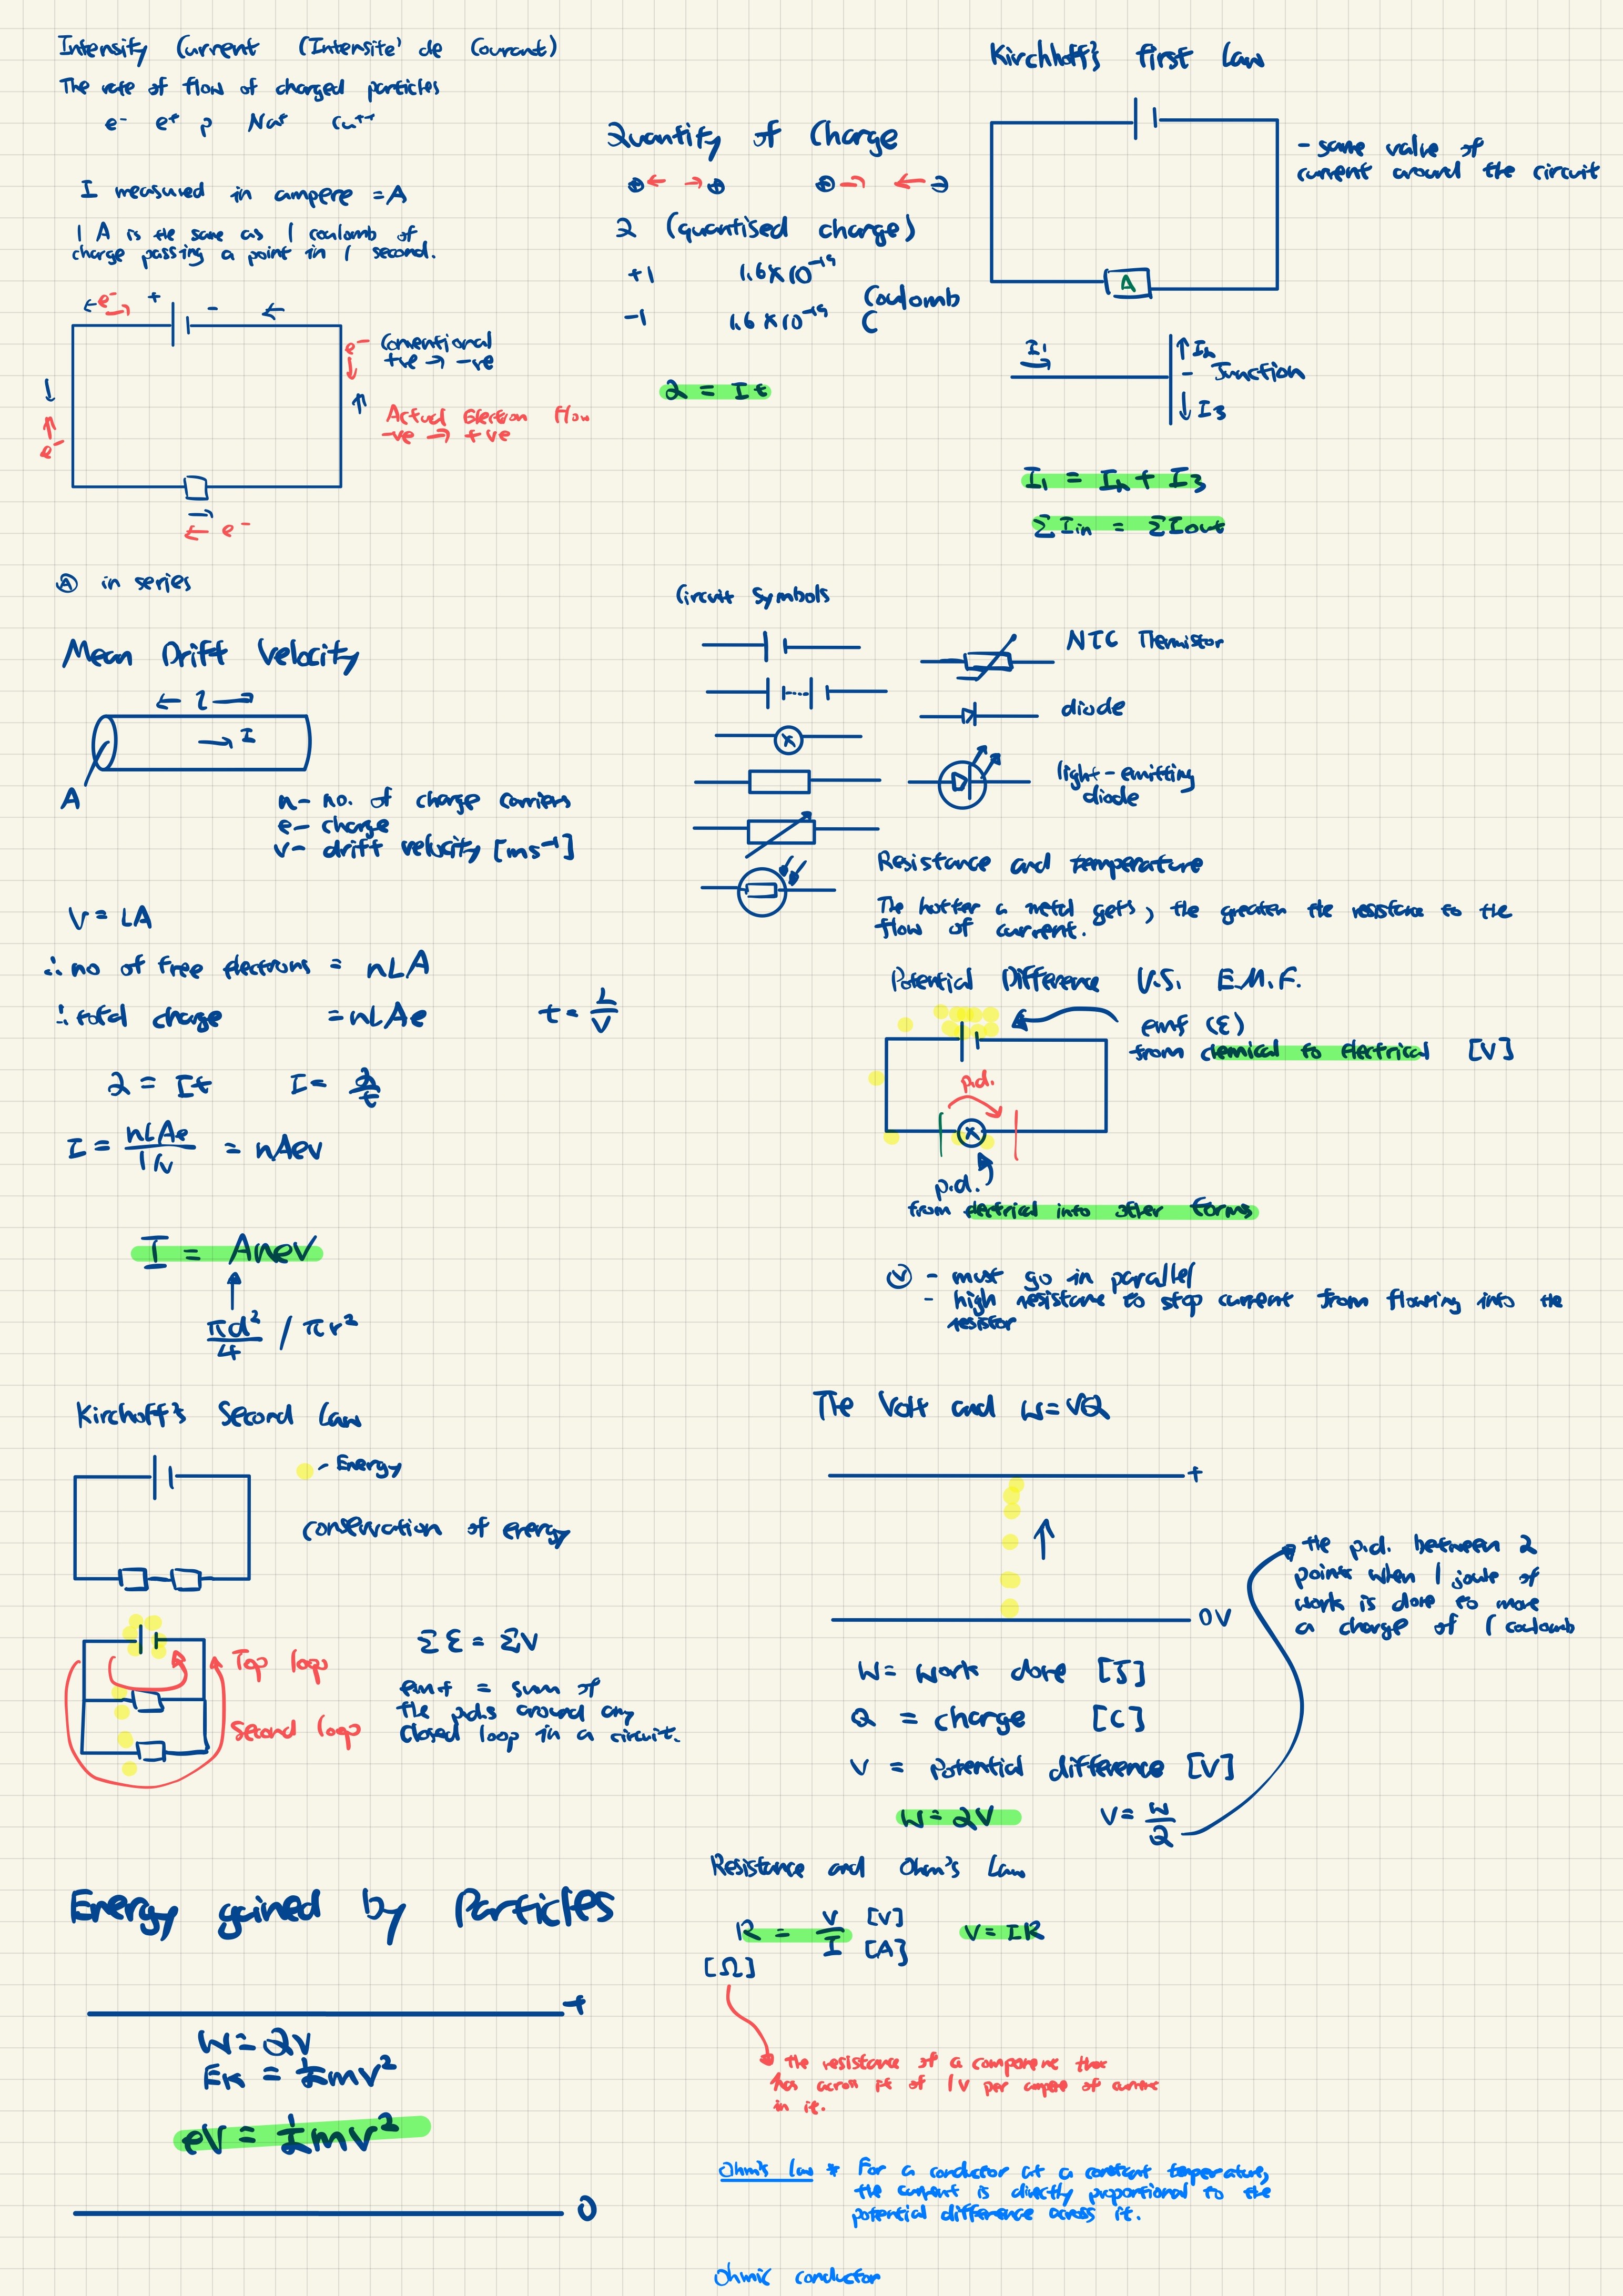 Intensity Current (Intensité de Courant)
The rate of flow of charged particles
e⁻ e⁺ p Na⁺ Cu⁺⁺
I measured in ampere = A
1 A is the same as 1 coulomb of
charge passing a point in 1 second.
← e⁻ → + - ←
e⁻
Conventional
+ve → -ve
Actual Electron flow
-ve → +ve
e⁻
← e⁻
Ⓐ in series
Quantity of Charge
⊕ ← → ⊕ ⊕ → ← ⊖
Q (quantised charge)
+1 1.6×10⁻¹⁹
-1 1.6×10⁻¹⁹ Coulomb
C
Q = It
Kirchhoff's first Law
- same value of
current around the circuit
A
I₁
↑ I₂
- Junction
↓ I₃
I₁ = I₂ + I₃
ΣIin = ΣIout
Mean Drift Velocity
← l →
→ I
A
n- no. of charge carriers
e- charge
v- drift velocity [ms⁻¹]
V = LA
∴ no of free electrons = nLA
∴ total charge = nLAe t = L/V
Q = It I = Q/t
I = nLAe / L/v = nAev
I = Anev
πd²/4 / πr²
Circuit Symbols
NTC Thermistor
diode
light-emitting
diode
Resistance and temperature
The hotter a metal gets, the greater the resistance to the
flow of current.
Potential Difference V.S. E.M.F.
emf (ε)
from chemical to electrical [V]
p.d.
p.d.
from electrical into other forms
Ⓥ - must go in parallel
- high resistance to stop current from flowing into the
resistor
Kirchoff's Second Law
- Energy
conservation of energy
Top loop
Second loop
Σε = ΣV
emf = sum of
the p.d.s around any
closed loop in a circuit.
The Volt and W=VQ
+
↑
0V
the p.d. between 2
points when 1 joule of
work is done to move
a charge of 1 coulomb
W = work done [J]
Q = charge [C]
V = potential difference [V]
W = QV V = W/Q
Energy gained by Particles
+
W = QV
Ek = ½mv²
eV = ½mv²
0
Resistance and Ohm's Law
R = V/I [V] [A] V = IR
[Ω]
the resistance of a component that
has across pd of 1V per ampere of current
in it.
Ohm's law * For a conductor at a constant temperature,
the current is directly proportional to the
potential difference across it.
Ohmic conductor